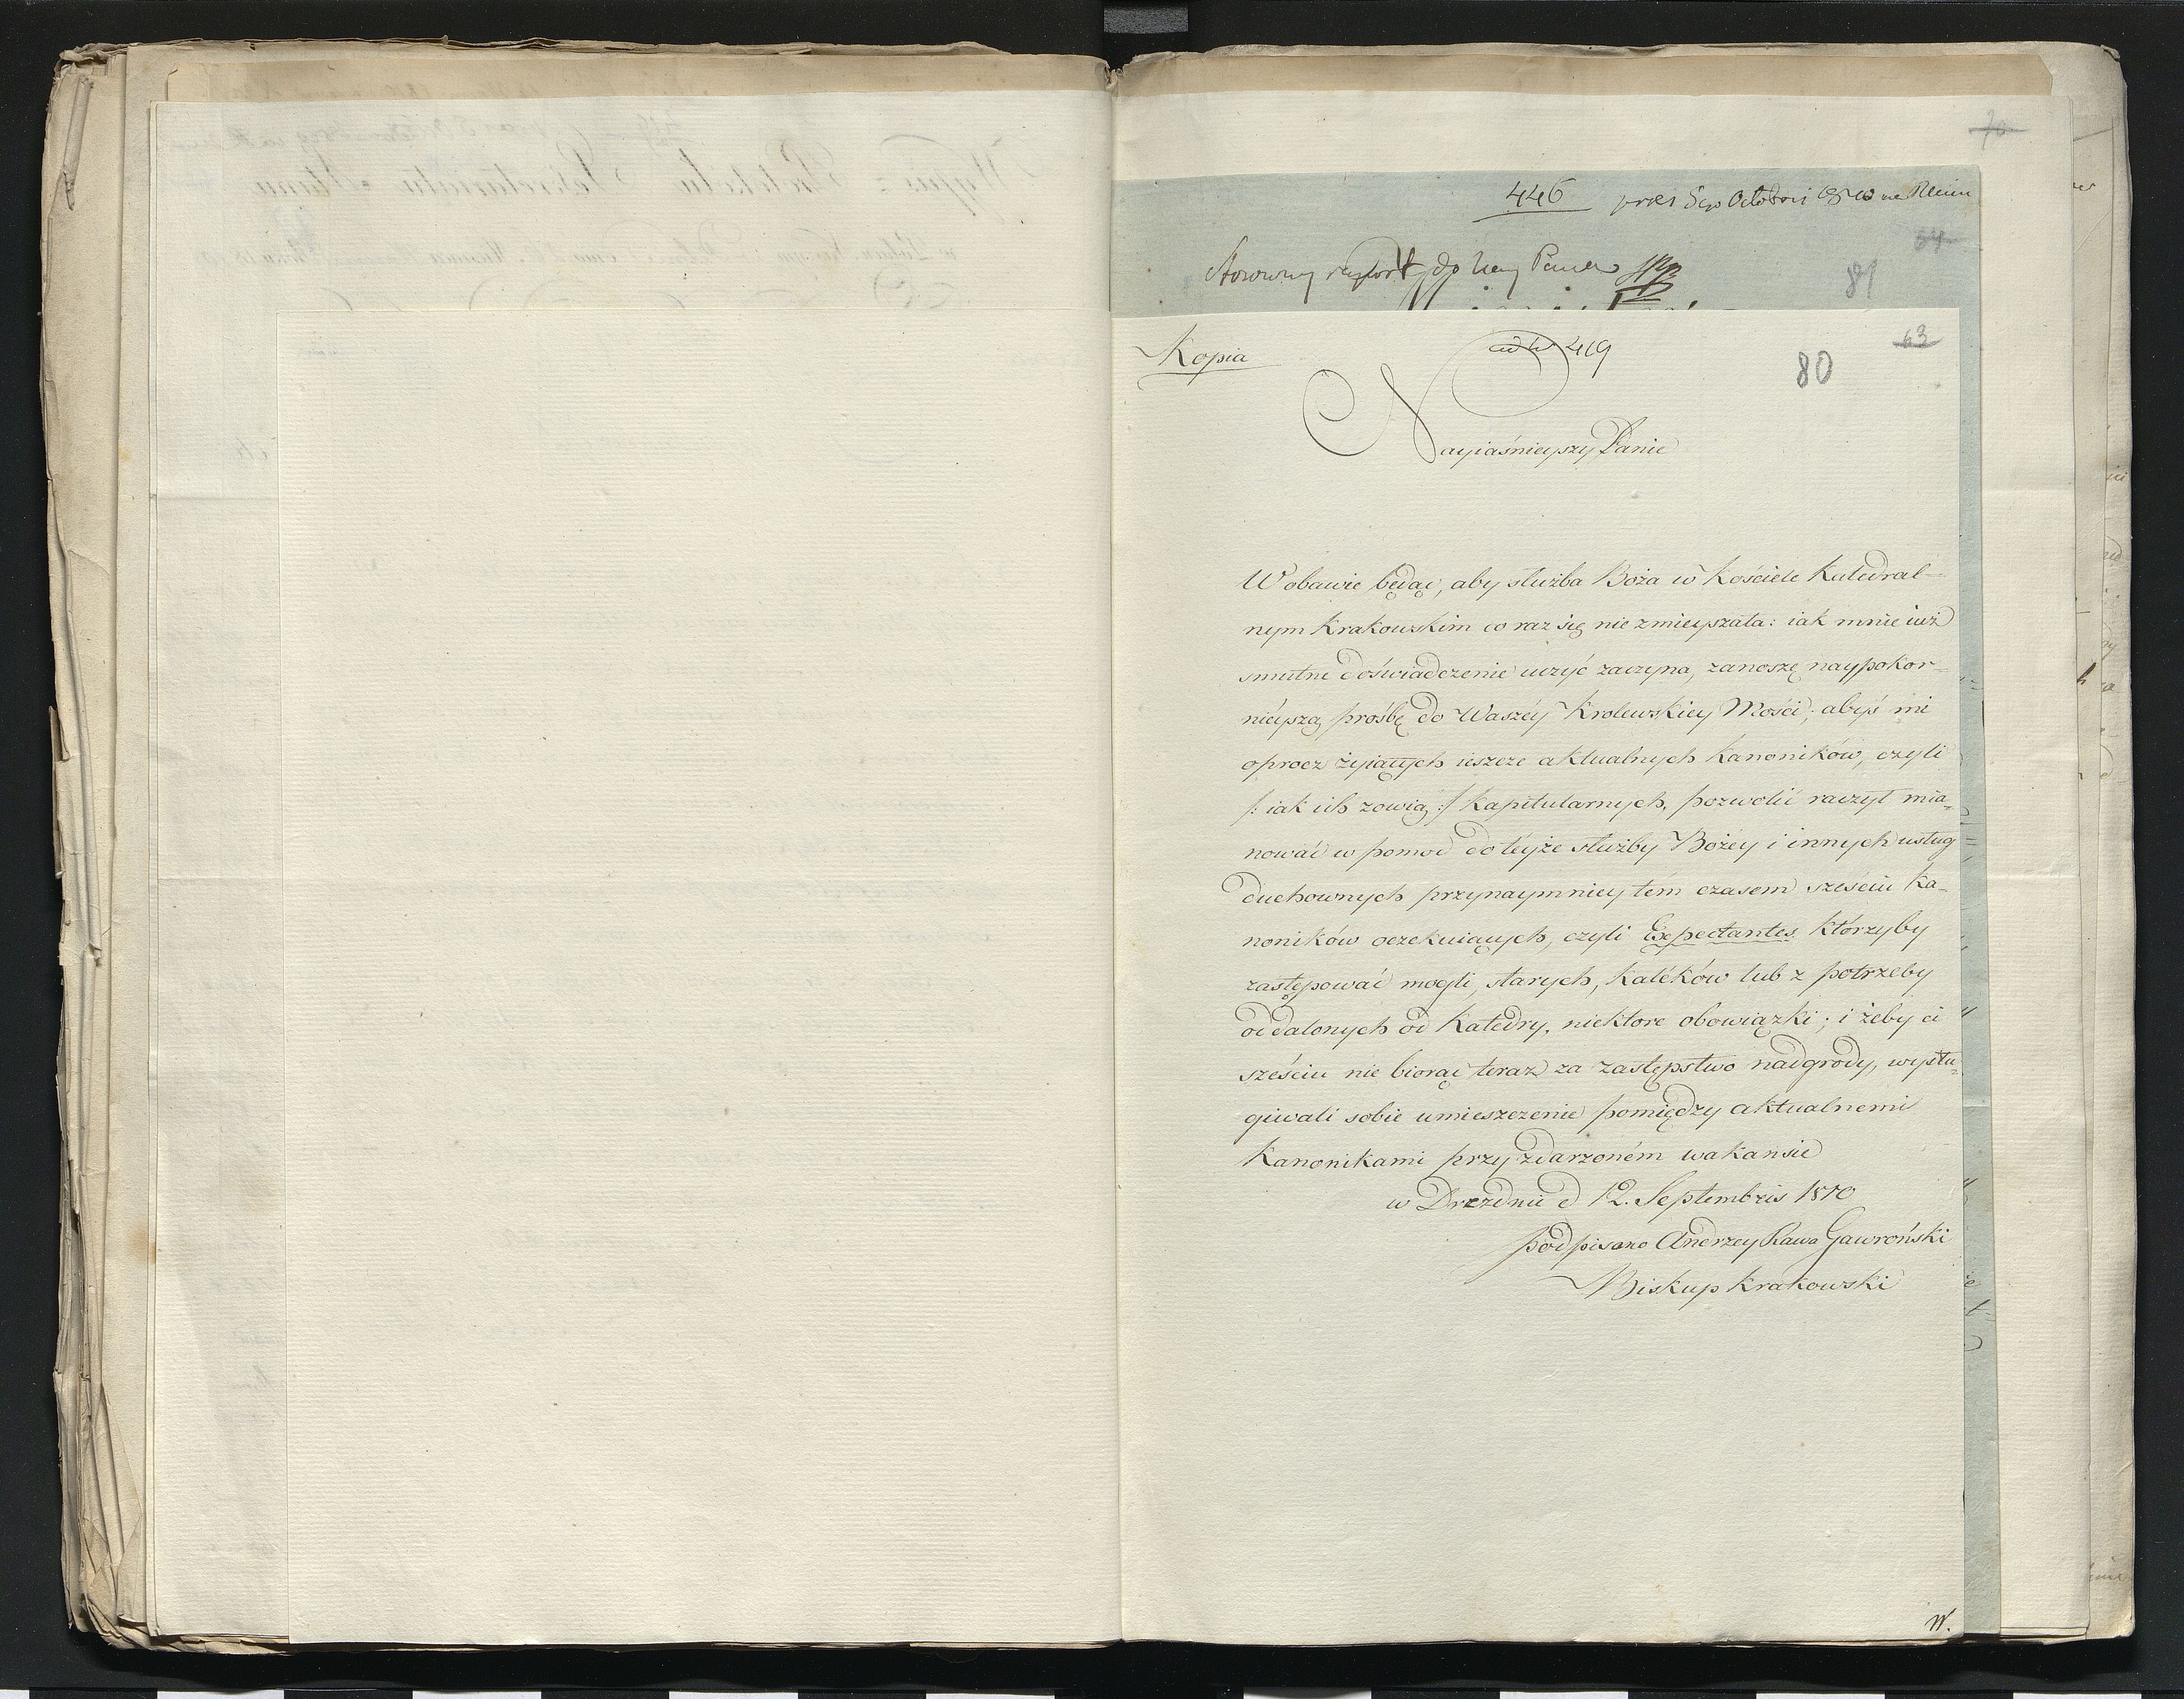 70
446
64
81
Kopia
419
63
80
Nayiaśnieyszy Panie
W obawie będąc, aby służba Boża w Kościele Katedral-
nym Krakowskim co raz się nie zmieyszała: iak mnie iuż
smutne doświadczenie uczyć zaczyna, zanoszę naypokor-
nieyszą prośbę do Waszéy Krolewskiey Mości, abyś mi
oprocz żyiących ieszcze aktualnych Kanoników, czyli
/: iak ich zowią :/ Kapitularnych, pozwolić raczył mia-
nować w pomoc do teyże służby Bożéy i innych usług
duchownych przynaymniey tém czasem sześciu Ka-
noników oczekuiących, czyli Expectantes którzyby
zastępować mogli, starych, kaléków lub z potrzeby
oddalonych od Katedry, niektore obowiązki; i żeby ci
sześciu nie biorąc teraz za zastępstwo nadgrody, wysłu-
giwali sobie umieszczenie pomiędzy aktualnemi
Kanonikami przy zdarzoném wakansie
w Dreznie d 12. Septembris 1810
podpisano Andrzey Rawa Gawroński
Biskup Krakowski
W.